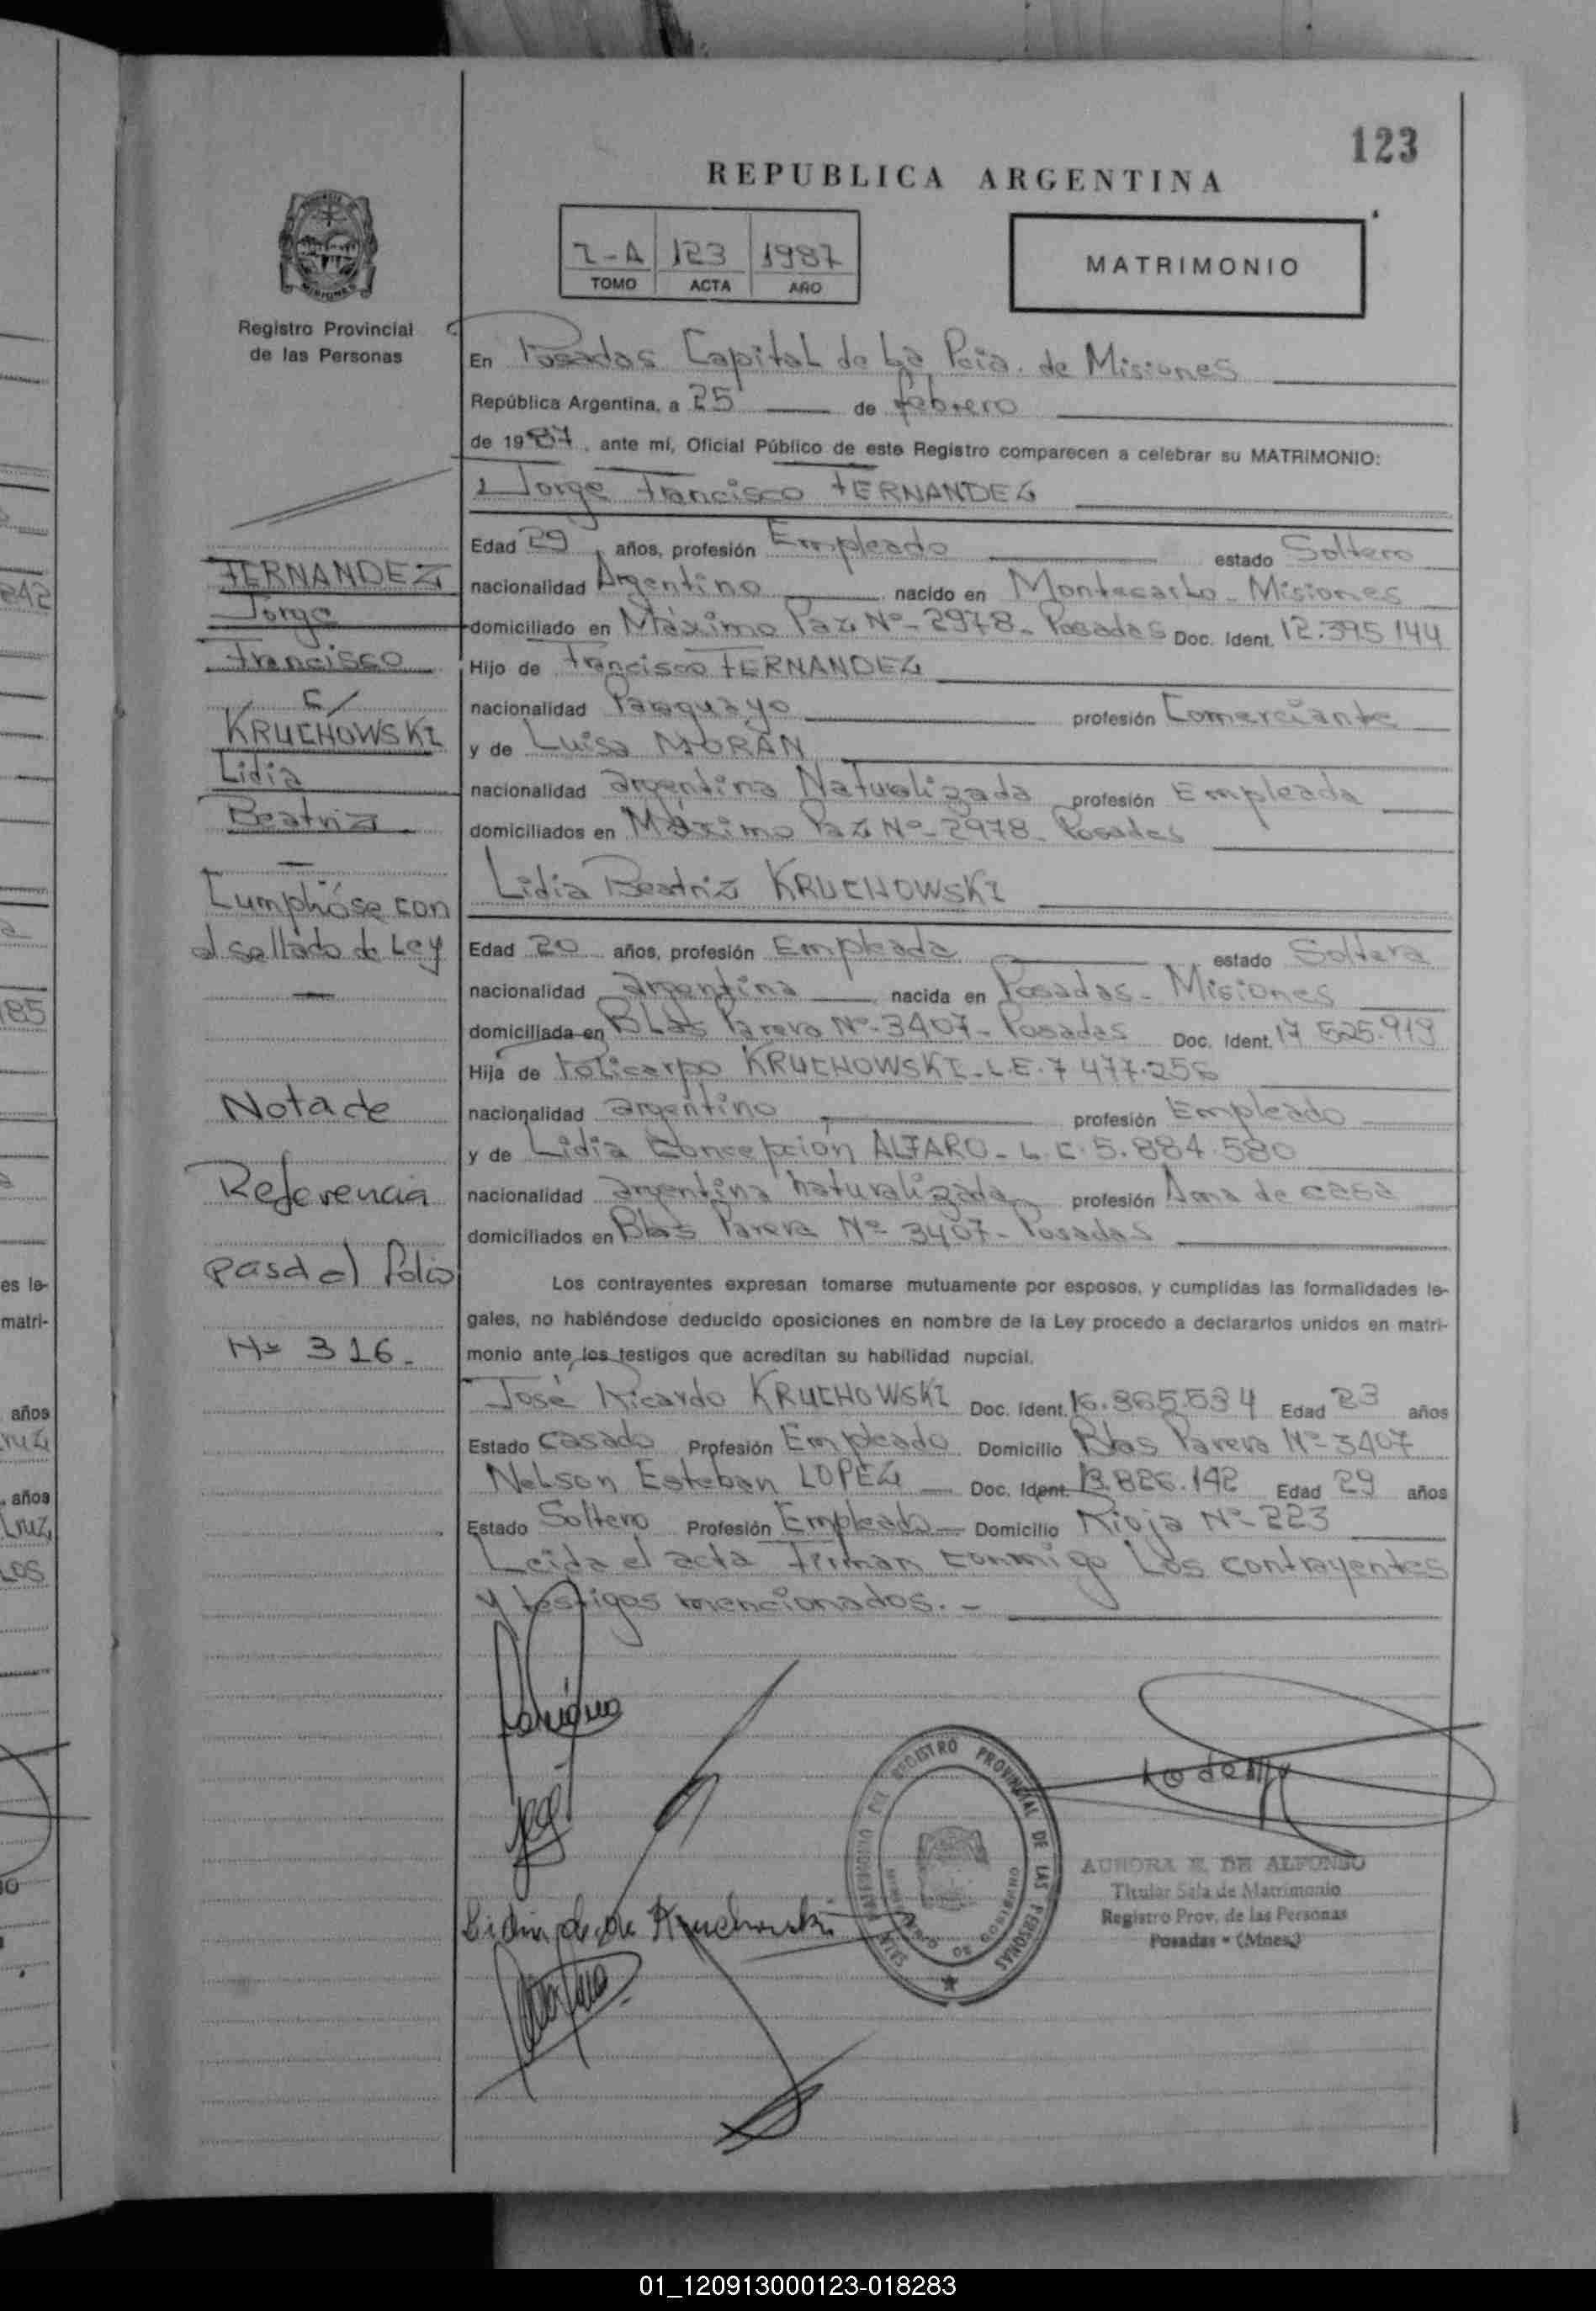 123
REPUBLICA ARGENTINA
MISIONES
Registro Provincial
de las Personas
123 1987
TOMO ACTA AÑO
MATRIMONIO
En Posadas Capital de La Pcia. de Misiones
República Argentina, a 25 de febrero
de 1987, ante mí, Oficial Público de este Registro comparecen a celebrar su MATRIMONIO:
Jorge Francisco FERNANDEZ
Edad 29, años, profesión Empleado estado Soltero
nacionalidad Argentino nacido en Montecarlo - Misiones
domiciliado en Máximo Paz Nº- 2978- Posadas Doc. Ident. 12.395.144
Hijo de Francisco FERNANDEZ
nacionalidad Paraguayo profesión Comerciante
y de Luisa MORAN
nacionalidad argentina Naturalizada profesión Empleada
domiciliados en Máximo Paz Nº- 2978- Posadas
Lidia Beatriz KRUCHOWSKI
Edad 20 años, profesión Empleada estado Soltera
nacionalidad argentina nacida en Posadas- Misiones
domiciliada en Blas Parera Nº- 3407- Posadas Doc. Ident. 17 525.919
Hija de Policarpo KRUCHOWSKI- L.E. 7 477.256
nacionalidad argentino profesión Empleado
y de Lidia Concepción ALFARO- L.C. 5.884.580
nacionalidad argentina naturalizada profesión Ama de casa
domiciliados en Blas Parera Nº 3407- Posadas
Los contrayentes expresan tomarse mutuamente por esposos, y cumplidas las formalidades le-
gales, no habiéndose deducido oposiciones en nombre de la Ley procedo a declararlos unidos en matri-
monio ante los testigos que acreditan su habilidad nupcial.
José Ricardo KRUCHOWSKI Doc. Ident. 16.365.534 Edad 23 años
Estado Casado Profesión Empleado Domicilio Blas Parera Nº- 3407
Nelson Esteban LOPEZ Doc. Ident. 13.826.142 Edad 29 años
Estado Soltero Profesión Empleado Domicilio Rioja Nº- 223
Leida el acta Firman conmigo Los contrayentes
y testigos mencionados.-
FERNANDEZ
Jorge
Francisco
c/
KRUCHOWSKI
Lidia
Beatriz
Cumplióse con
el sellado de Ley
Nota de
Referencia
pasa al Folio
Nº 316.
Kruchowski
REGISTRO PROVINCIAL DE LAS PERSONAS
AURORA E. DE ALFONSO
Titular Sala de Matrimonio
Registro Prov. de las Personas
Posadas - (Mnes.)
242
185
es le-
matri-
años
años
01_120913000123-018283